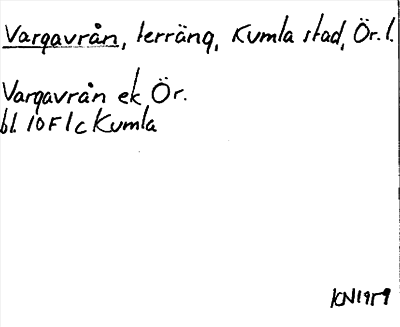 Vargavrån, terräng, Kumla stad, Ör. l.
Vargavrån ek Ör.
bl. 10 F 1 c Kumla
KN1959